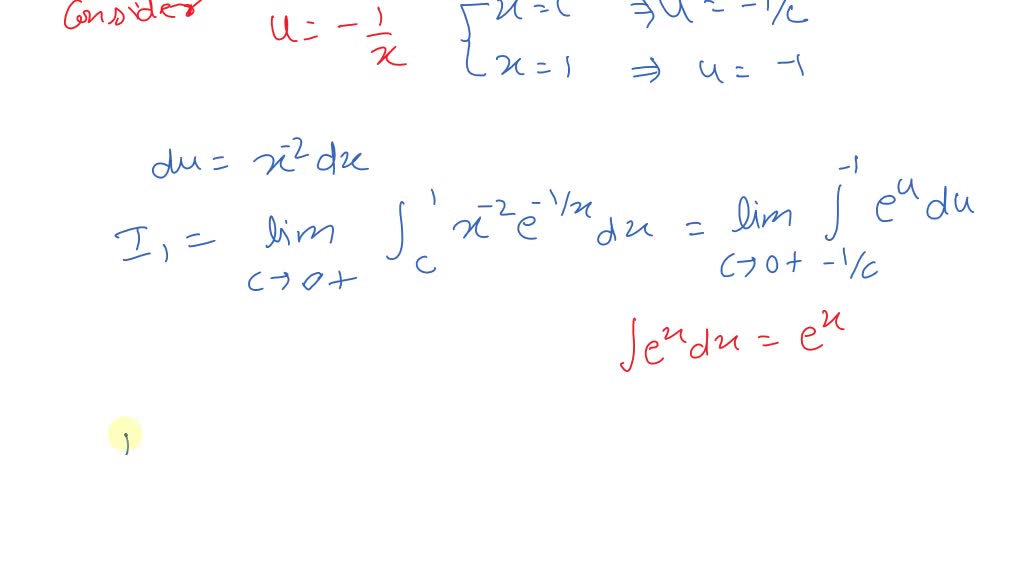 Consider u = -1/x { x = c ⇒ u = -1/c
x = 1 ⇒ u = -1
du = x^-2 dx
I_1 = lim_{c→0+} ∫_c^1 x^-2 e^{-1/x} dx = lim_{c→0+} ∫_{-1/c}^{-1} e^u du
∫e^x dx = e^x